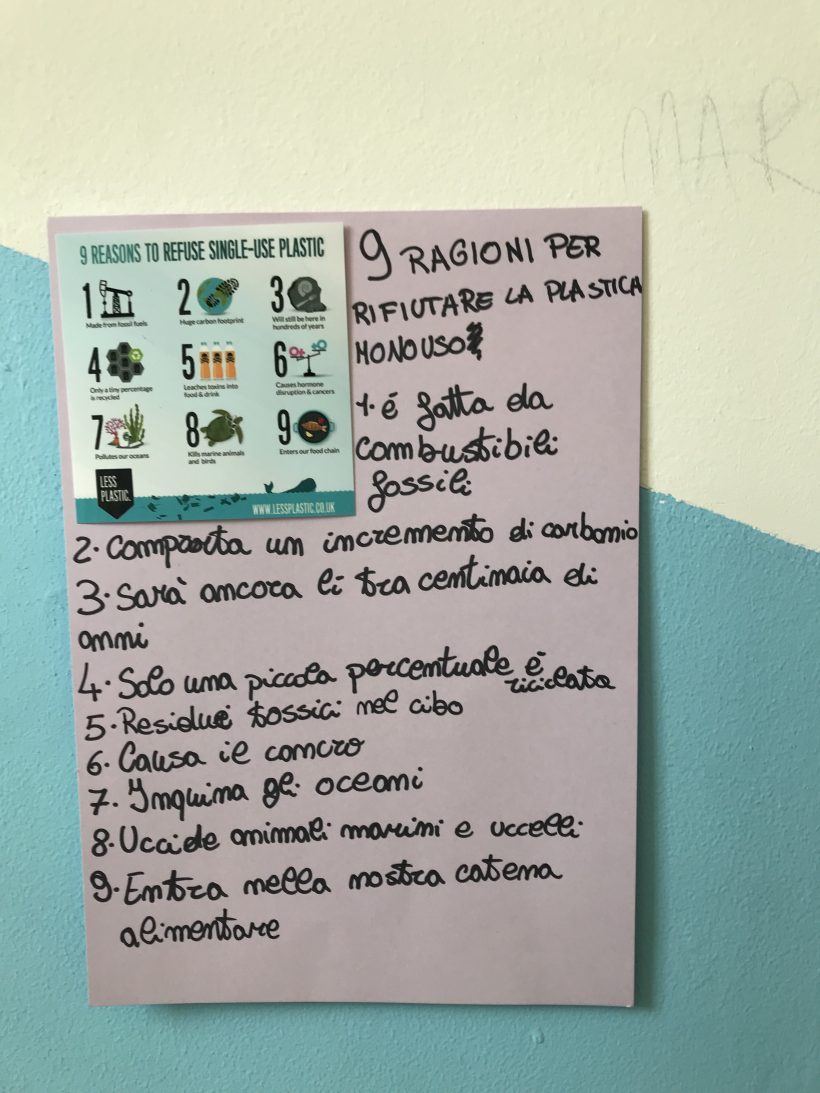 MAR
9 REASONS TO REFUSE SINGLE-USE PLASTIC
1
Made from fossil fuels
2
Huge carbon footprint
3
Will still be here in
hundreds of years
4
Only a tiny percentage
is recycled
5
Leaches toxins into
food & drink
6
Causes hormone
disruption & cancers
7
Pollutes our oceans
8
Kills marine animals
and birds
9
Enters our food chain
LESS
PLASTIC.
WWW.LESSPLASTIC.CO.UK
9 RAGIONI PER
RIFIUTARE LA PLASTICA
MONOUSO
1. é fatta da
combustibili
fossili
2. Comprocta un incremento di carbonio
3. Sarà ancora li tra centinaia di
anni
4. Solo una piccola percentuale è
riciclata
5. Residui tossici nel cibo
6. Causa il cancro
7. Inquina gli oceani
8. Uccide animali marini e uccelli
9. Entra nella nostra catena
alimentare